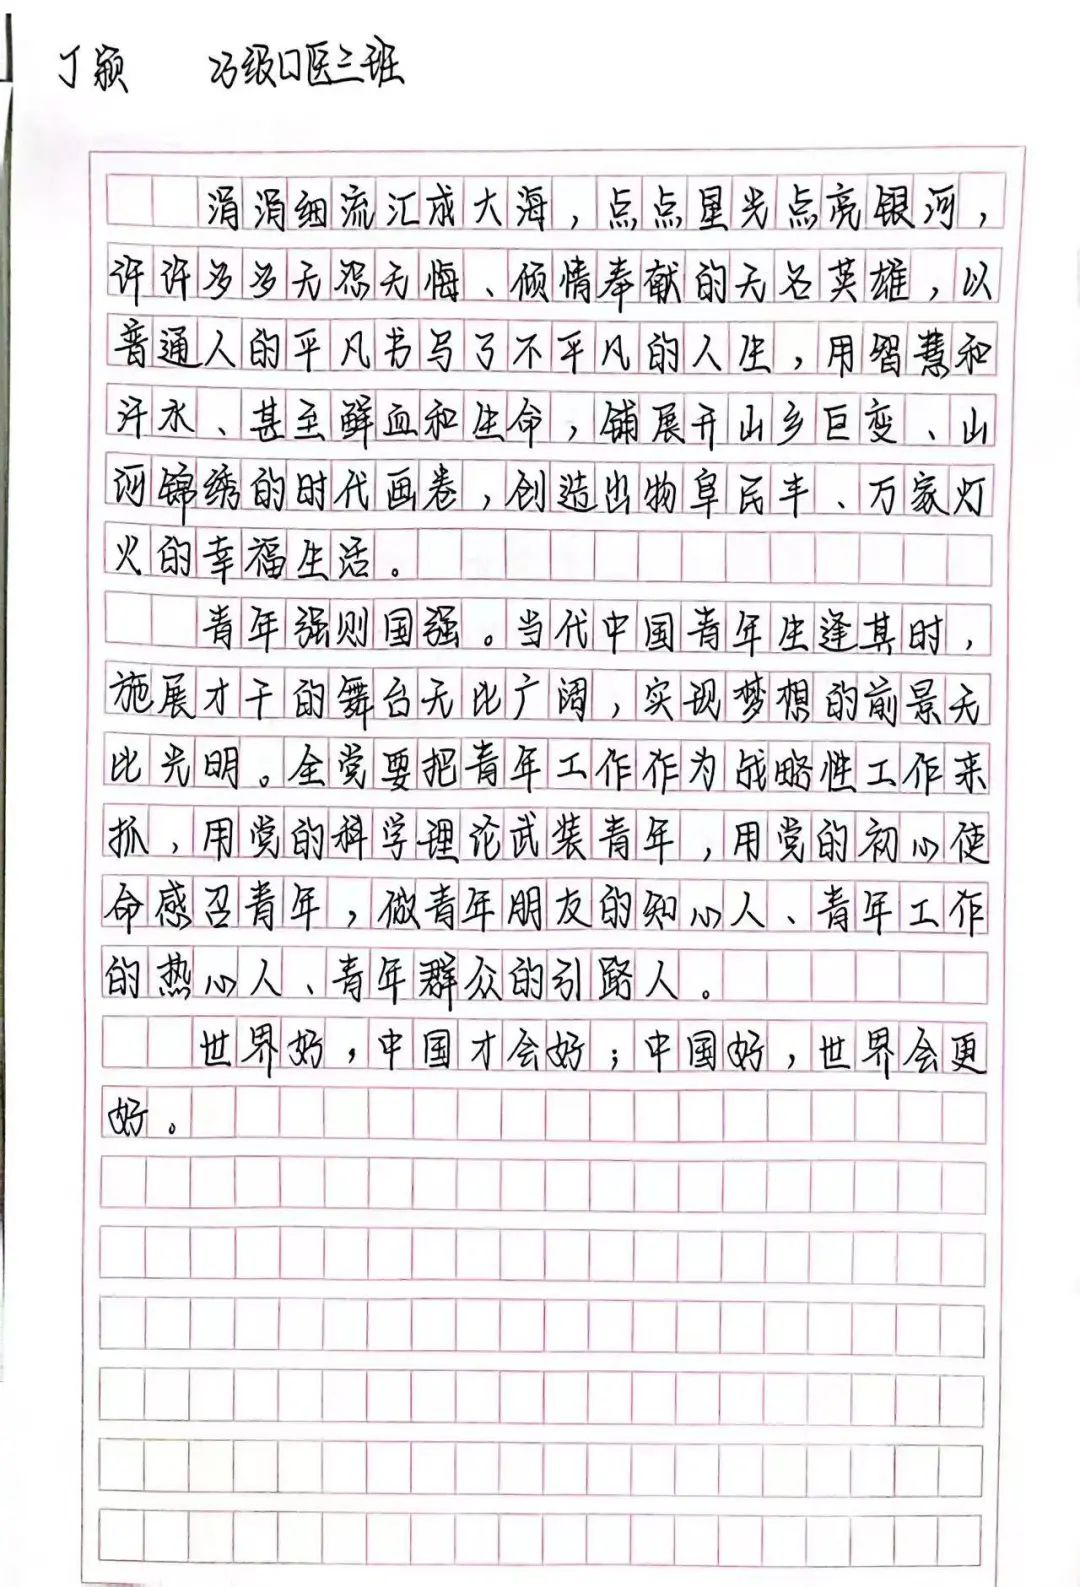 丁颖 23级口医三班
涓涓细流汇成大海，点点星光点亮银河，
许许多多无怨无悔、倾情奉献的无名英雄，以
普通人的平凡书写了不平凡的人生，用智慧和
汗水、甚至鲜血和生命，铺展开山乡巨变、山
河锦绣的时代画卷，创造出物阜民丰、万家灯
火的幸福生活。
青年强则国强。当代中国青年生逢其时，
施展才干的舞台无比广阔，实现梦想的前景无
比光明。全党要把青年工作作为战略性工作来
抓，用党的科学理论武装青年，用党的初心使
命感召青年，做青年朋友的知心人、青年工作
的热心人、青年群众的引路人。
世界好，中国才会好；中国好，世界会更
好。